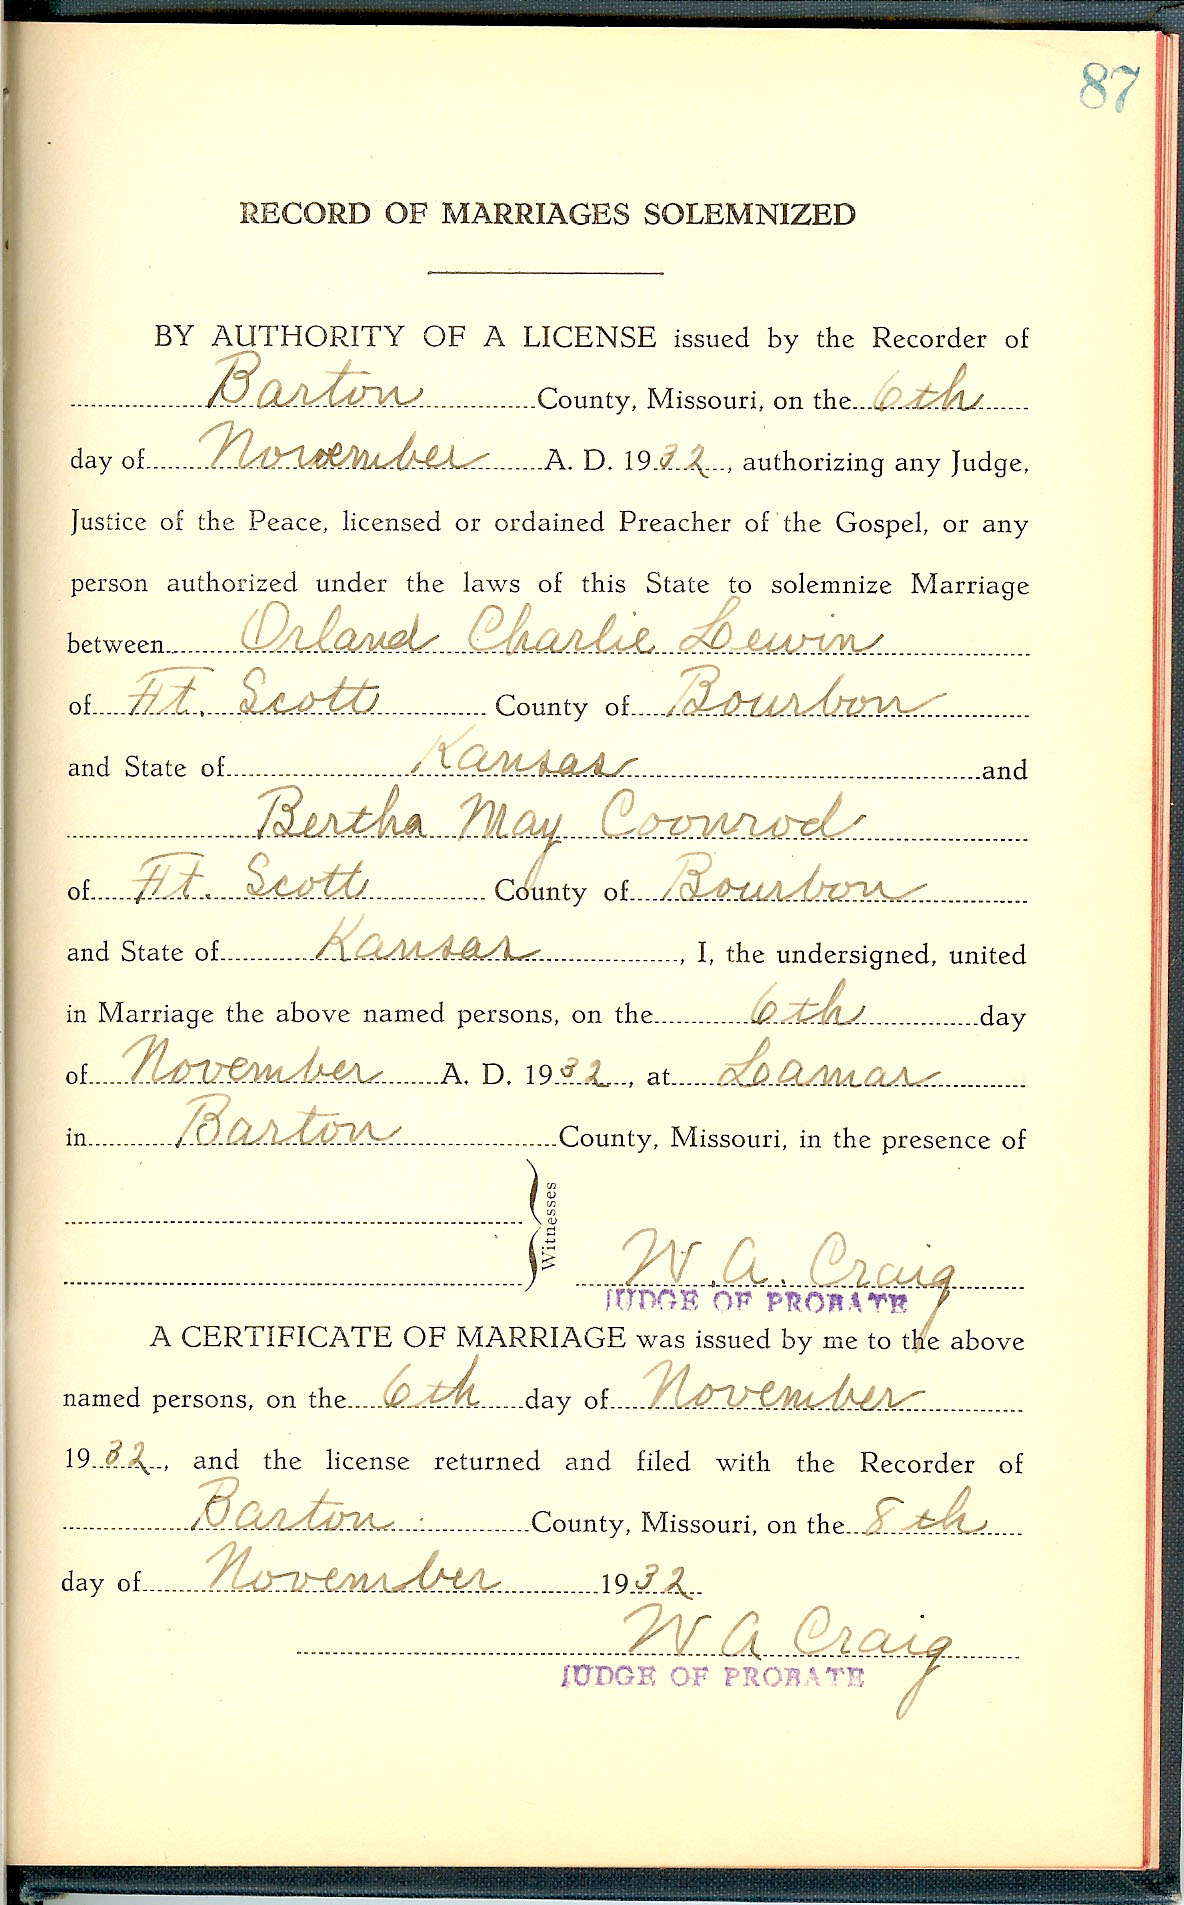 87
RECORD OF MARRIAGES SOLEMNIZED
BY AUTHORITY OF A LICENSE issued by the Recorder of
Barton County, Missouri, on the 6th
day of November A. D. 1932, authorizing any Judge,
Justice of the Peace, licensed or ordained Preacher of the Gospel, or any
person authorized under the laws of this State to solemnize Marriage
between Orland Charlie Lewin
of Ft. Scott County of Bourbon
and State of Kansas and
Bertha May Coonrod
of Ft. Scott County of Bourbon
and State of Kansas, I, the undersigned, united
in Marriage the above named persons, on the 6th day
of November A. D. 1932, at Lamar
in Barton County, Missouri, in the presence of
Witnesses
W. A. Craig
JUDGE OF PROBATE
A CERTIFICATE OF MARRIAGE was issued by me to the above
named persons, on the 6th day of November
1932, and the license returned and filed with the Recorder of
Barton County, Missouri, on the 8th
day of November 1932
W A Craig
JUDGE OF PROBATE